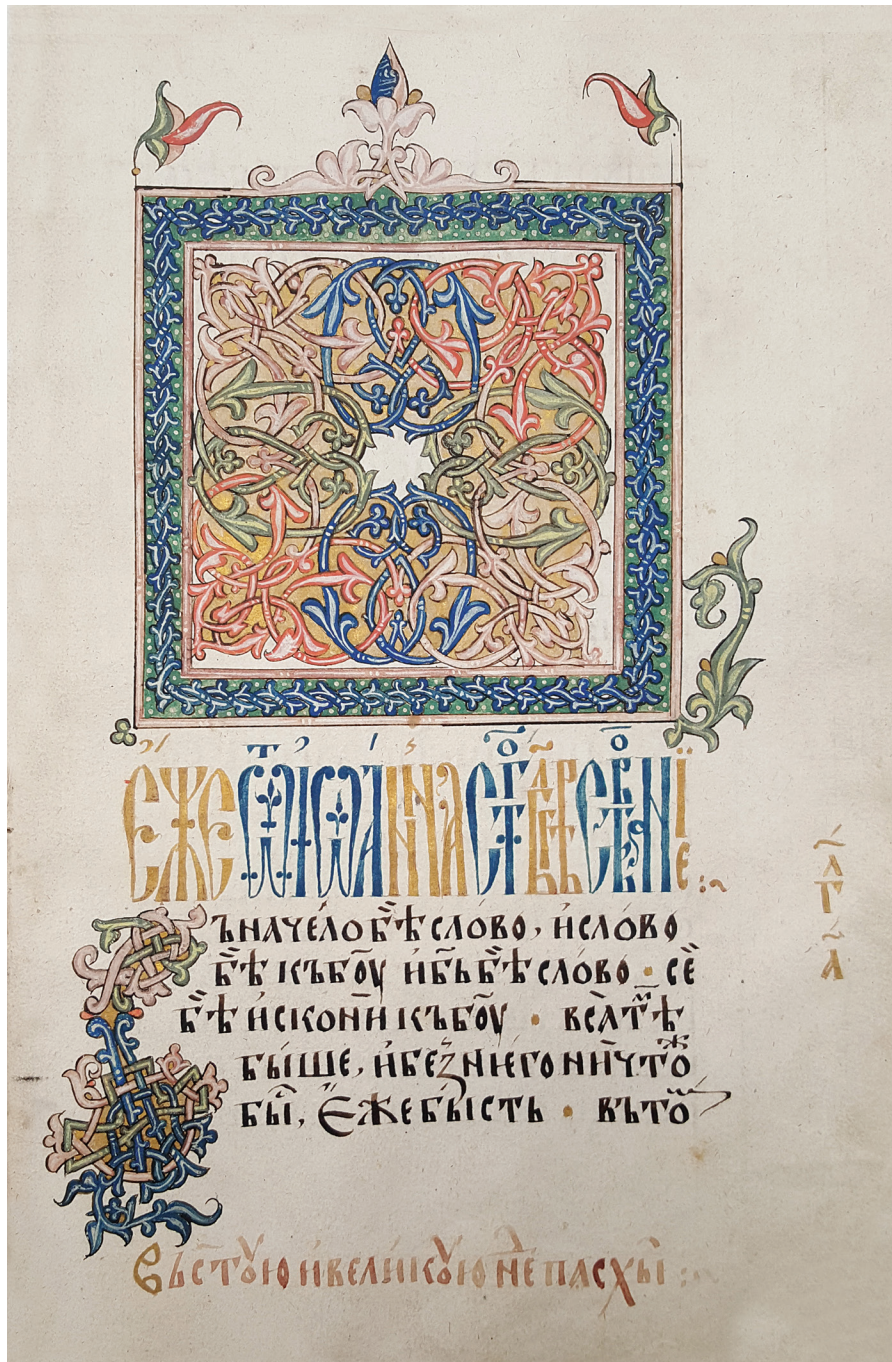 Е́же ѿ Іѡа́нна ст҃го бл҃говѣствова́нїе :~
Въ наче́ло бѣ̀ сло́во, и҆ сло́во
бѣ̀ къ бо҃у и҆ б҃ь бѣ̀ сло́во · се̏
бѣ̀ и҆скони̏ къ бо҃у · всꙗ̑ тѣ̑м
бы́ше, и҆ без̾ ніего ничто́ж
бы̏, Е҆́же бысть · въ то́м
л҃
г
а҃
Въ ст҃ꙋю и҆ вели́кꙋю не҃д пасхы̏ :~